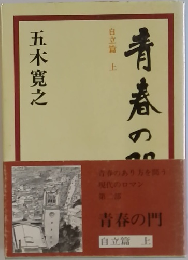 青春の門
自立篇 上
五木寛之
青春のあり方を問う
現代のロマン
第二部
青春の門
自立篇 上